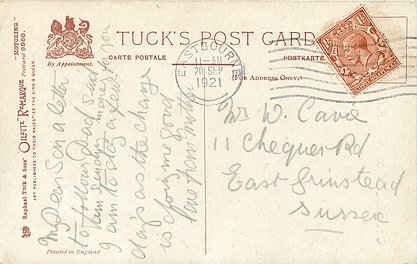 TUCK'S POST CARD
CARTE POSTALE
POSTKARTE
(FOR ADDRESS ONLY.)
By Appointment
"MOTORING."
Postcard 9960.
Raphael Tuck & Sons' "OILETTE" REMARQUE
ART PUBLISHERS TO THEIR MAJESTIES THE KING & QUEEN.
Printed in England
EASTBOURNE
11-AM
20 SEP
1921
My Dear Son a letter
to follow Dad
I am to stay a few
days as the change
is doing me good
Love from Mother
Mr W. Cave
11 Chequer Rd
East Grinstead
Sussex